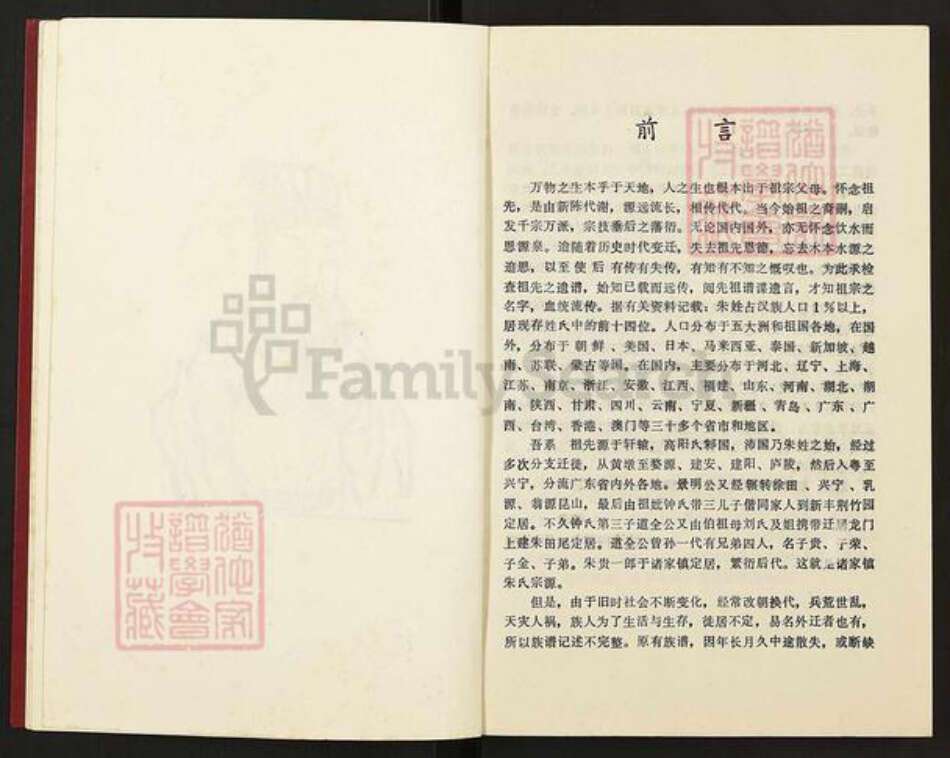 前言
万物之生本乎于天地，人之生也根本出于祖宗父母。怀念祖
先，是由新陈代谢，源远流长，相传代代。当今始祖之裔嗣，启
发千宗万派，宗技垂后之蕃衍。无论国内国外，亦无怀念饮水而
思源泉。迨随着历史时代变迁，失去祖先恩德，忘去木本水源之
追思，以至使后有传有失传，有知有不知之慨叹也。为此承检
查祖先之遗谱，始知已载而远传，阅先祖谱谍遗言，才知祖宗之
名字，血统流传。据有关资料记载：朱姓占汉族人口1％以上，
居现存姓氏中的前十四位。人口分布于五大洲和祖国各地，在国
外，分布于朝鲜、美国、日本、马来西亚、泰国、新加坡、越
南、苏联、蒙古等国。在国内，主要分布于河北、辽宁、上海、
江苏、南京、浙江、安徽、江西、福建、山东、河南、湖北、湖
南、陕西、甘肃、四川、云南、宁夏、新疆、青岛、广东、广
西、台湾、香港、澳门等三十多个省市和地区。
吾系 祖先源于轩辕，高阳氏郣国，沛国乃朱姓之始，经过
多次分支迁徙，从黄墩至婺源、建安、建阳、庐陵，然后入粤至
兴宁，分流广东省内外各地。景明公又经辗转徐田、兴宁、乳
源、翁源昆山，最后由祖妣钟氏带三儿子偕同家人到新丰荆竹园
定居。不久钟氏第三子道全公又由伯祖母刘氏及姐携带迁居龙门
上建朱田尾定居。道全公曾孙一代有兄弟四人，名子贵、子荣、
子金、子弟。朱贵一郎于诸家镇定居，繁衍后代。这就是诸家镇
朱氏宗源。
但是，由于旧时社会不断变化，经常改朝换代，兵荒世乱，
天灾人祸，族人为了生活与生存，徙居不定，易名外迁者也有，
所以族谱记述不完整。原有族谱，因年长月久中途散失，或断缺
FamilySearch